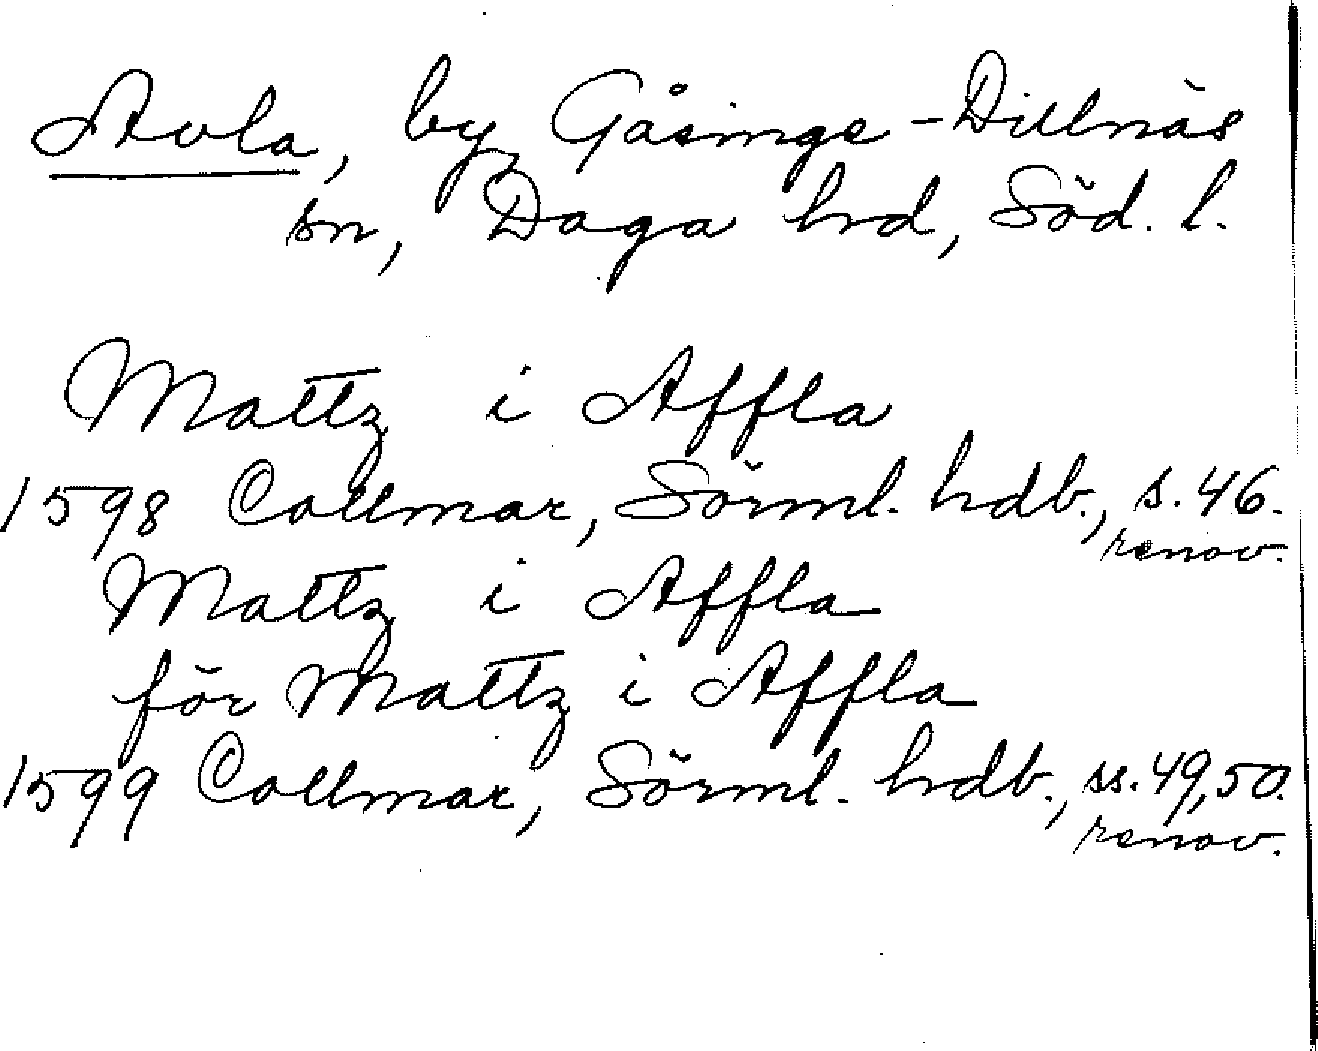 Avla, by, Gåsinge-Dillnäs
sn, Daga hd, Söd. l.
Mattz i Affla
1598 Collmar, Sörml. hdb., s. 46.
renov.
Mattz i Affla
för Mattz i Affla
1599 Collmar, Sörml. hdb., ss. 49, 50.
renov.